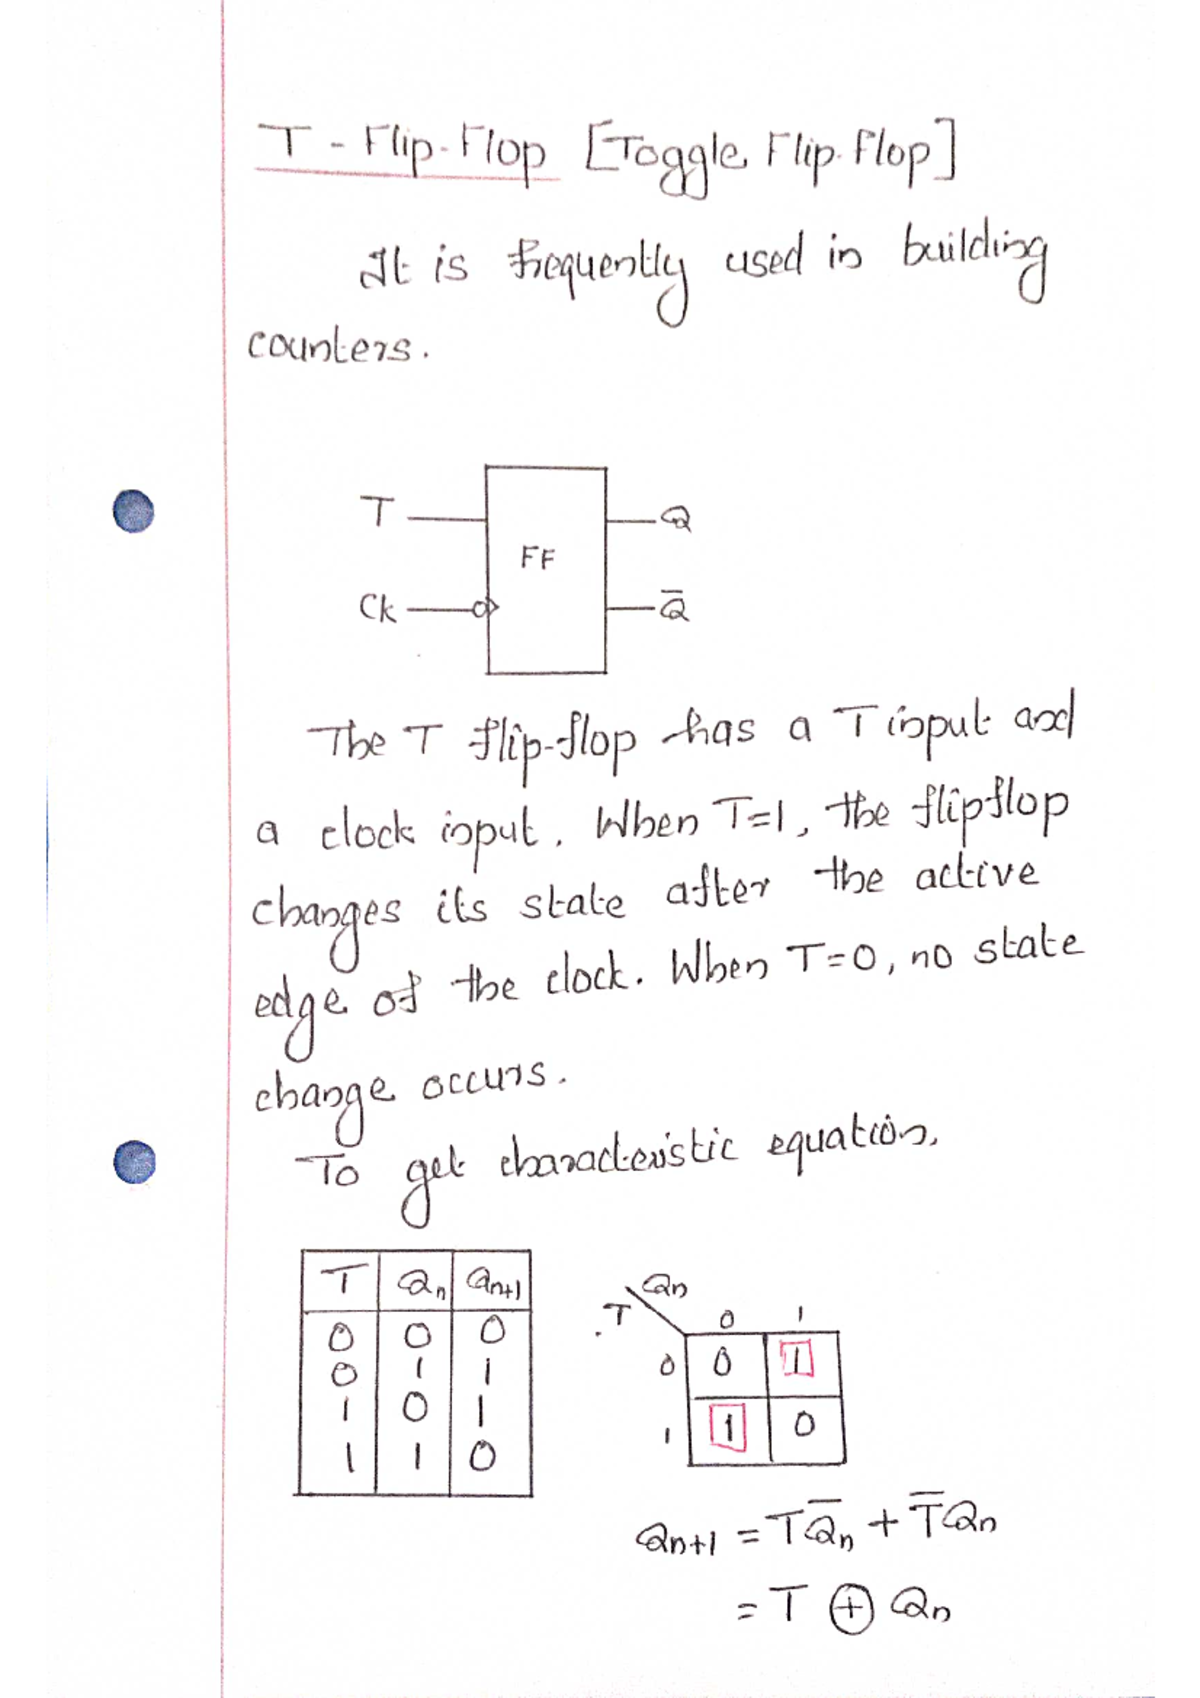 T - Flip-Flop [Toggle Flip-Flop]
It is frequently used in building
counters.
T
Q
FF
Ck
Q̅
The T flip-flop has a T input and
a clock input. When T=1, the flipflop
changes its state after the active
edge of the clock. When T=0, no state
change occurs.
To get characteristic equation,
T Qn Qn+1
0 0 0
0 1 1
1 0 1
1 1 0
Qn
T 0 1
0 0 1
1 1 0
Qn+1 = TQ̅n + T̅Qn
= T ⊕ Qn